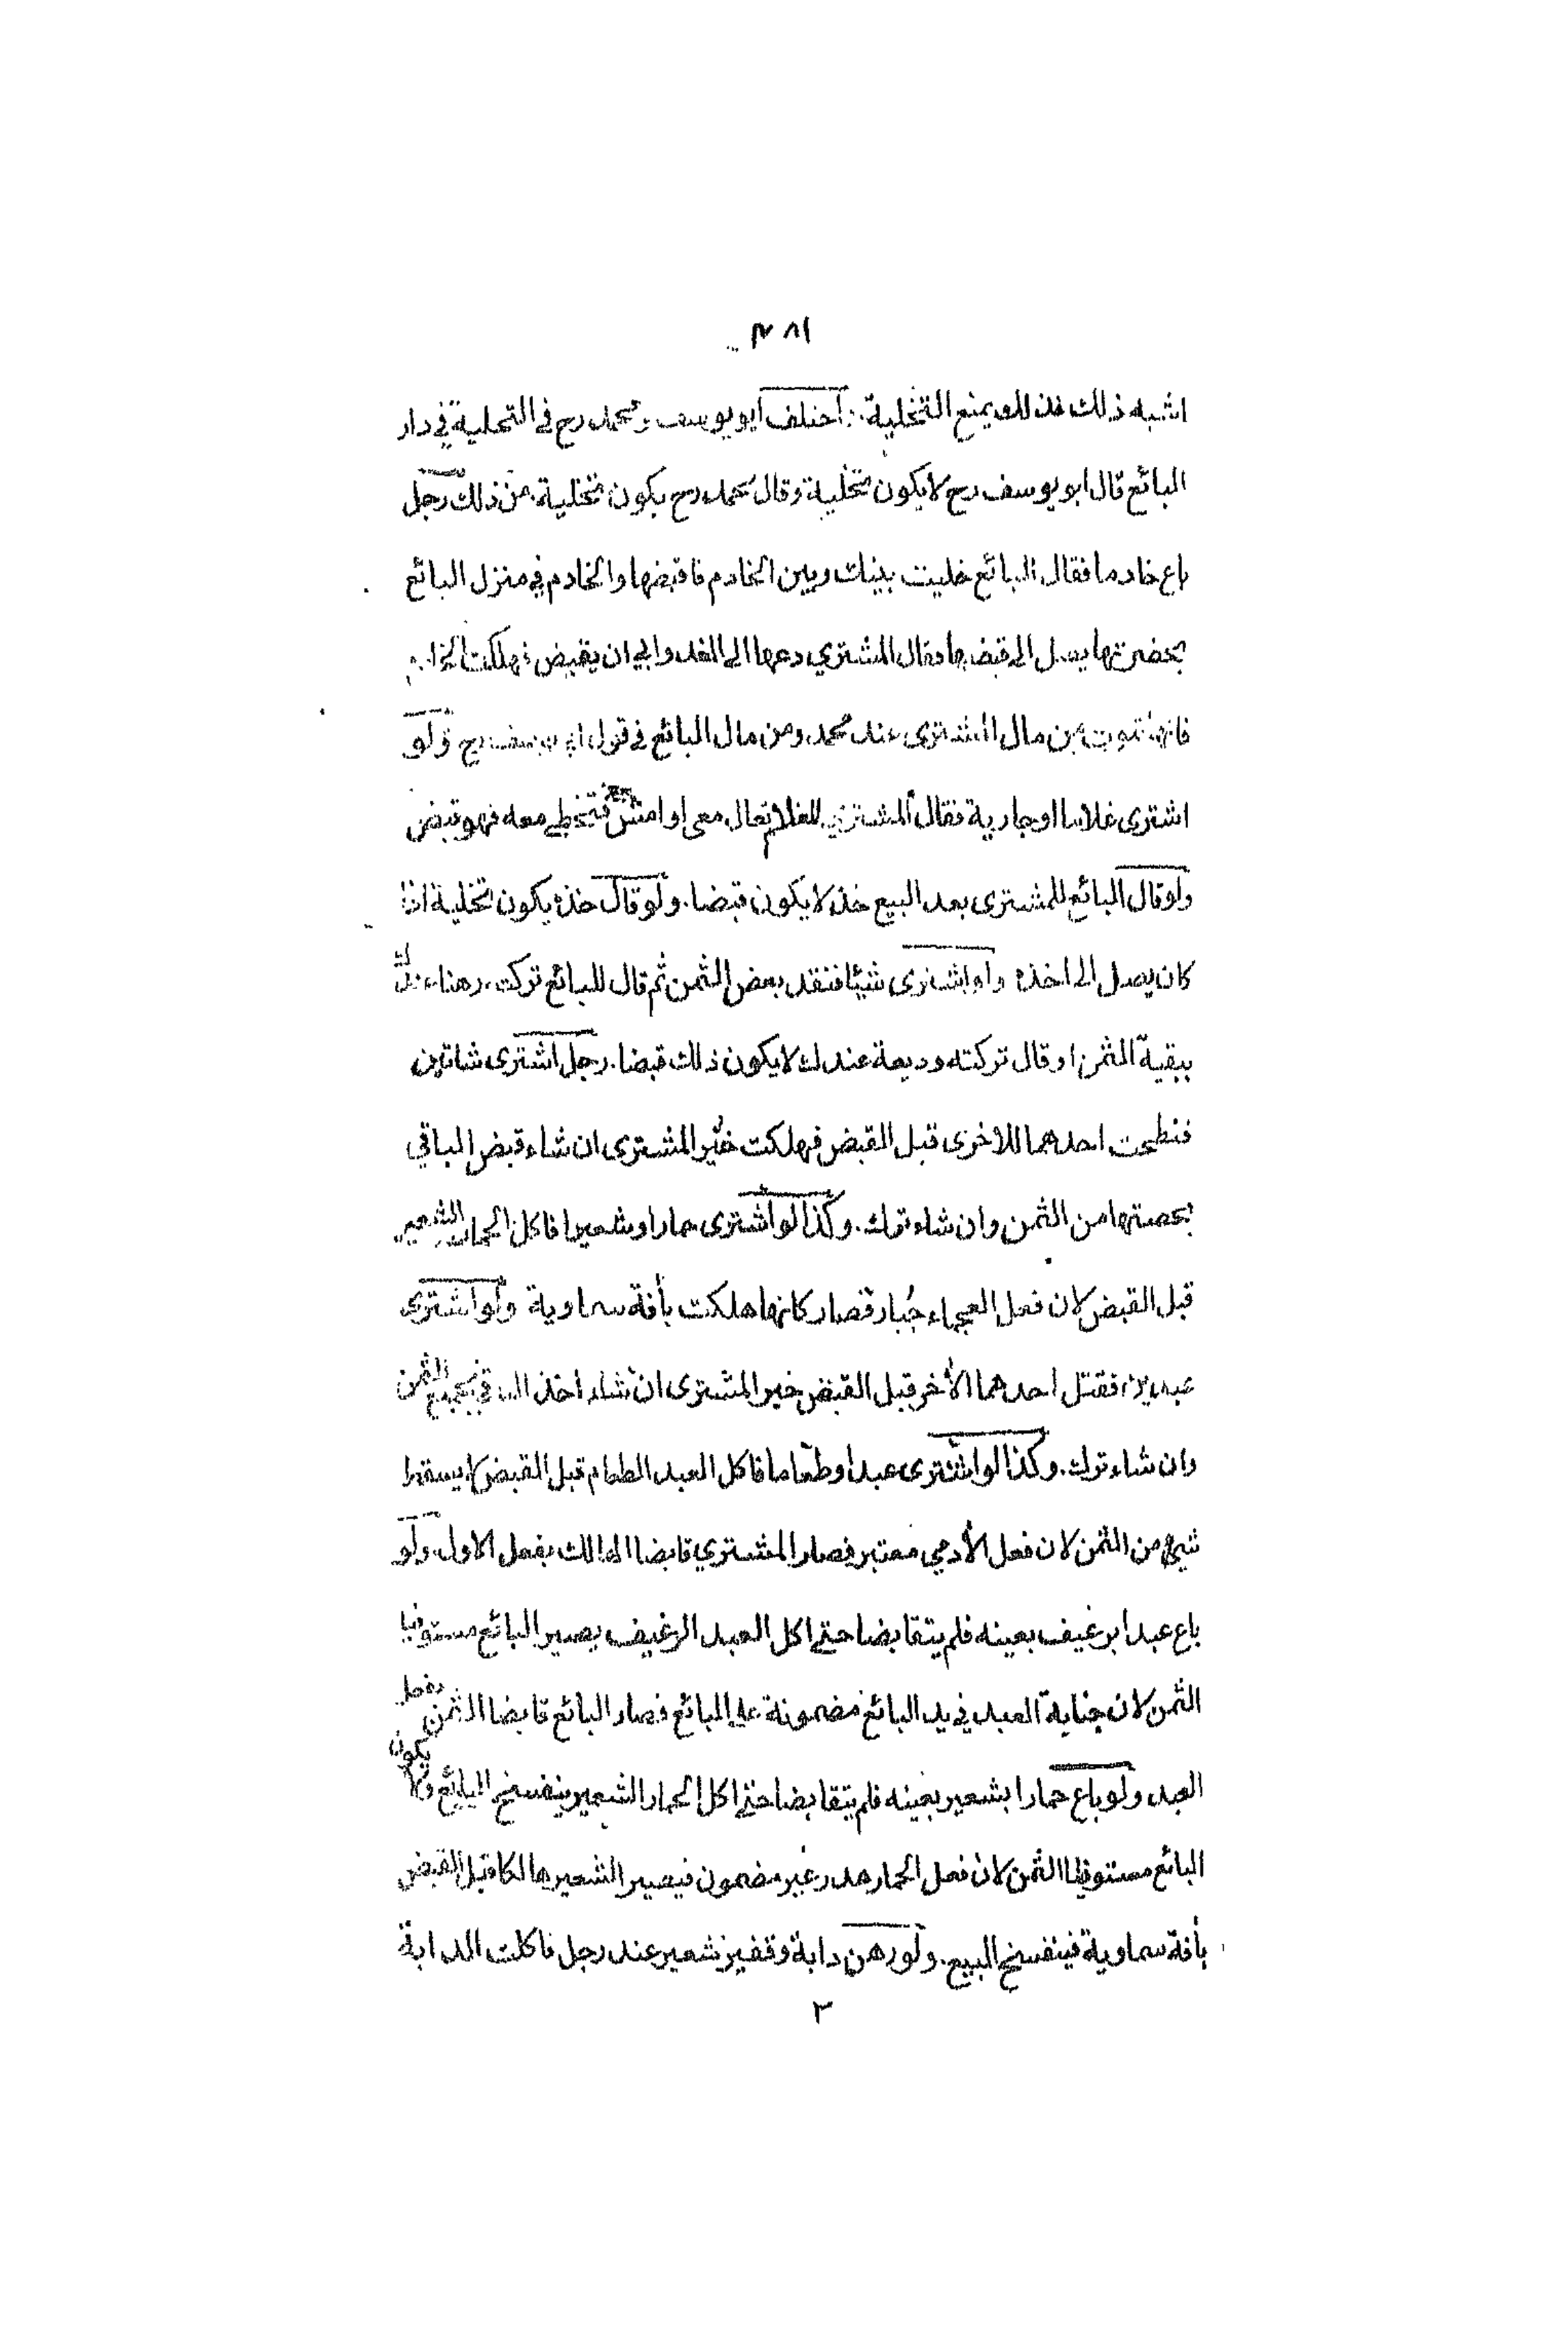 ٣٨١
اشبه ذلك فذلك يمنع التخلية. اختلف ابو يوسف و محمد رح في التخلية في دار
البائع قال ابو يوسف رح لا يكون تخلية وقال محمد رح يكون تخلية من ذلك رجل
باع خادما فقال البائع خليت بينك وبين الخادم فاقبضها والخادم في منزل البائع
بحضرتها يصل الى قبضها فقال المشتري دعها الى الغد وابى ان يقبض فهلكت
فانها تموت من مال المشترى عند محمد ومن مال البائع في قول ابي يوسف رح ولو
اشترى غلاما او جارية فقال المشتري للغلام تعال معي او امش فتخطى معه فهو قبض
ولو قال البائع للمشترى بعد البيع خذ لا يكون قبضا. ولو قال خذه يكون تخلية اذا
كان يصل الى اخذه ولو اشترى شيئا فنقد بعض الثمن ثم قال للبائع تركته رهنا عندك
ببقية الثمن او قال تركته وديعة عندك لا يكون ذلك قبضا. رجل اشترى شاتين
فنطحت احدهما للاخرى قبل القبض فهلكت خيّر المشترى ان شاء قبض الباقي
بحصتها من الثمن وان شاء ترك. وكذا لو اشترى حمارا وشعيرا فاكل الحمار الشعير
قبل القبض لان فعل العجماء جُبار فصار كانها هلكت بأفة سماوية ولو اشترى
عبدين فقتل احدهما الأخر قبل القبض خير المشترى ان شاء اخذ الباقي بجميع الثمن
وان شاء ترك. وكذا لو اشترى عبدا وطعاما فاكل العبد الطعام قبل القبض لا يسقط
شيء من الثمن لان فعل الأدمي معتبر فصار المشتري قابضا الهالك بفعل الاول. ولو
باع عبدا برغيف بعينه فلم يتقابضا حتى اكل العبد الرغيف يصير البائع مستوفيا
الثمن لان جناية العبد في يد البائع مضمونة على البائع فصار البائع قابضا الثمن بفعل
العبد ولو باع حمارا بشعير بعينه فلم يتقابضا حتى اكل الحمار الشعير ينفسخ البيع ولا يكون
البائع مستوفيا الثمن لان فعل الحمار هدر غير مضمون فيصير الشعير هالكا قبل القبض
بأفة سماوية فينفسخ البيع. ولو رهن دابة وقفيز شعير عند رجل فاكلت الدابة
٣